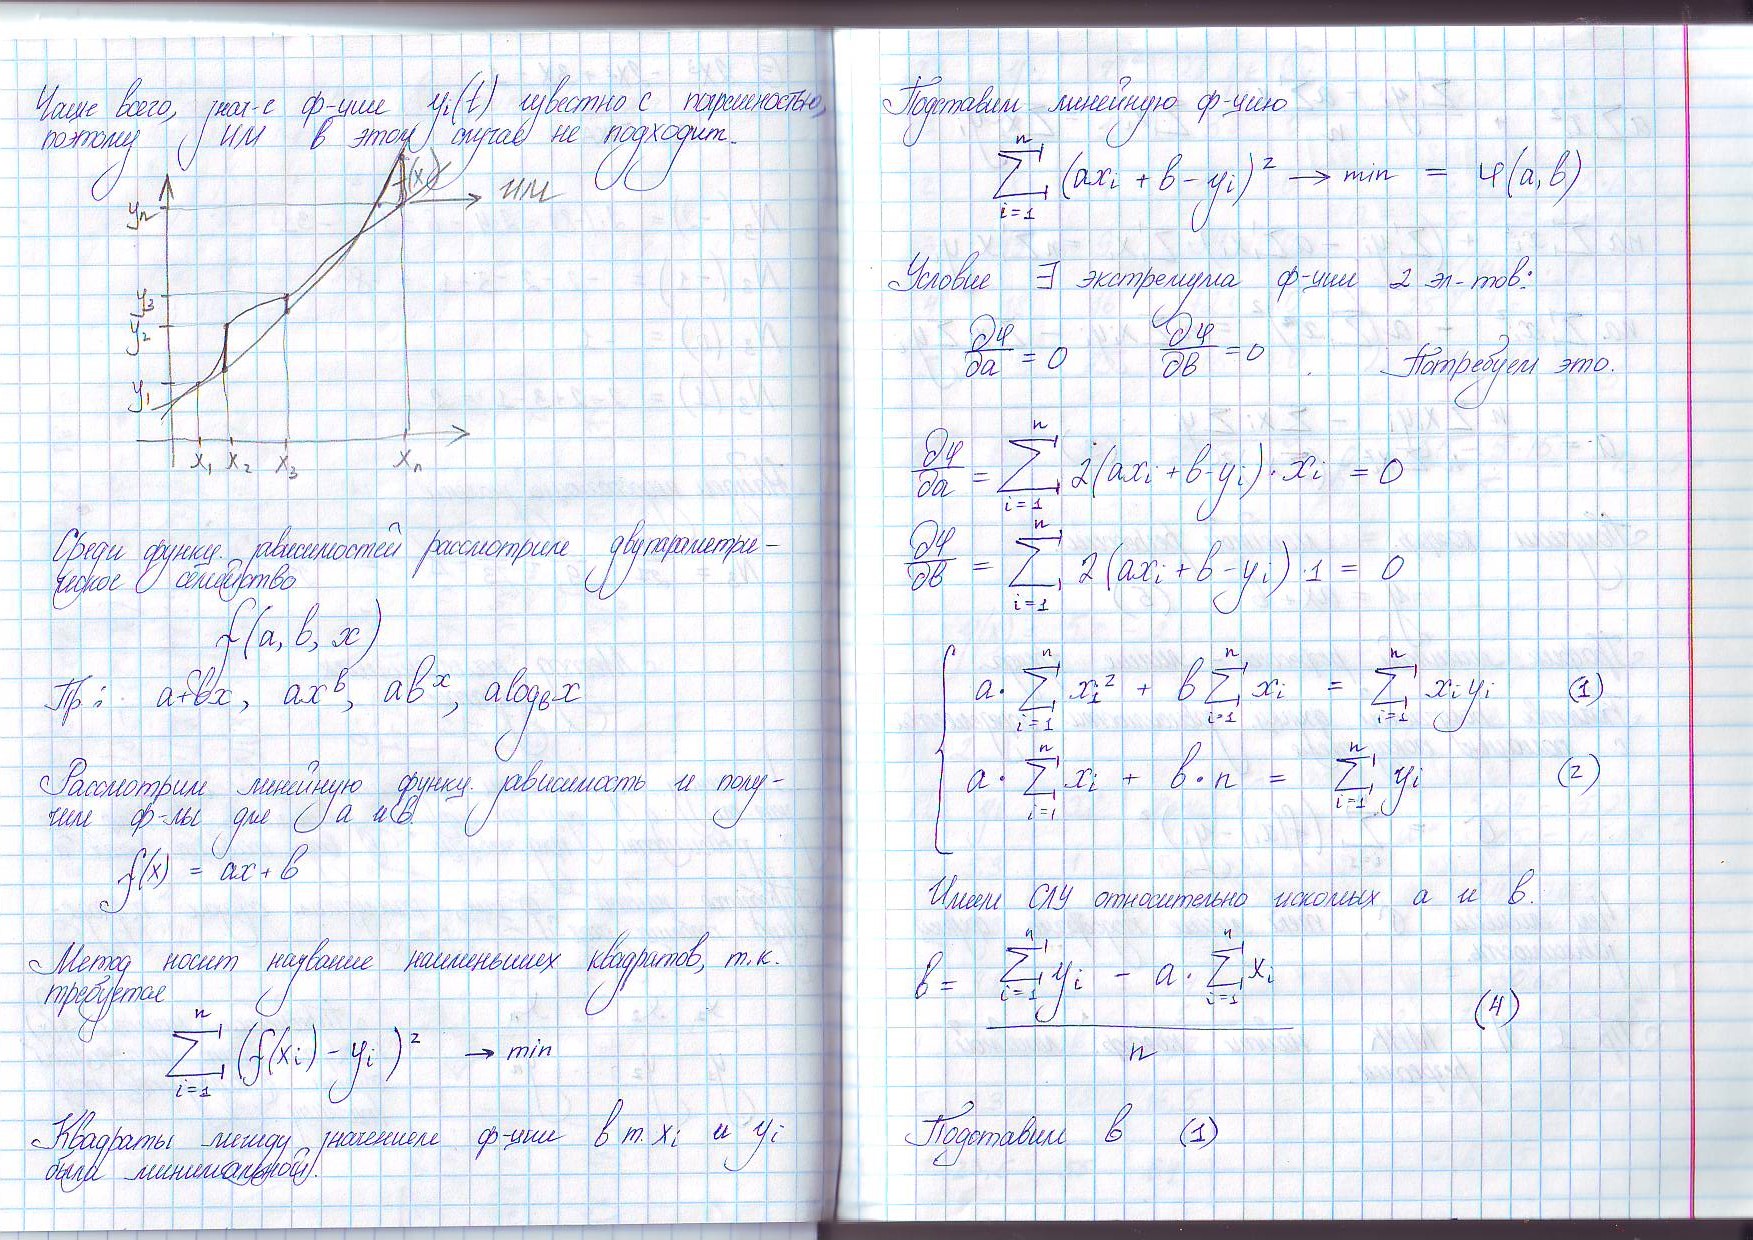 Чаще всего, знач-е ф-ции yᵢ(t) известно с погрешностью,
поэтому ИМ в этом случае не подходит.
yₙ
f(x)
ИМ
y₃
y₂
y₁
x₁ x₂ x₃ xₙ
Среди функц. зависимостей рассмотрим двупараметри-
ческое семейство
f(a, b, x)
Пр: a+bx, ax^b, ab^x, a log_b x
Рассмотрим линейную функц. зависимость и полу-
чим ф-лы для a и b.
f(x) = ax + b
Метод носит название наименьших квадратов, т.к.
требуется
∑_{i=1}^{n} (f(xᵢ) - yᵢ)² → min
Квадраты между значением ф-ции в т. xᵢ и yᵢ
были минимальной.
Подставим линейную ф-цию
∑_{i=1}^{n} (axᵢ + b - yᵢ)² → min = φ(a, b)
Условие ∃ экстремума ф-ции 2 эл-тов:
∂φ/∂a = 0 ∂φ/∂b = 0. Потребуем это.
∂φ/∂a = ∑_{i=1}^{n} 2(axᵢ + b - yᵢ) · xᵢ = 0
∂φ/∂b = ∑_{i=1}^{n} 2(axᵢ + b - yᵢ) · 1 = 0
{ a · ∑_{i=1}^{n} xᵢ² + b ∑_{i=1}^{n} xᵢ = ∑_{i=1}^{n} xᵢyᵢ (1)
a · ∑_{i=1}^{n} xᵢ + b · n = ∑_{i=1}^{n} yᵢ (2)
Имеем СЛУ относительно искомых a и b.
b = (∑_{i=1}^{n} yᵢ - a · ∑_{i=1}^{n} xᵢ) / n (4)
Подставим b (1)